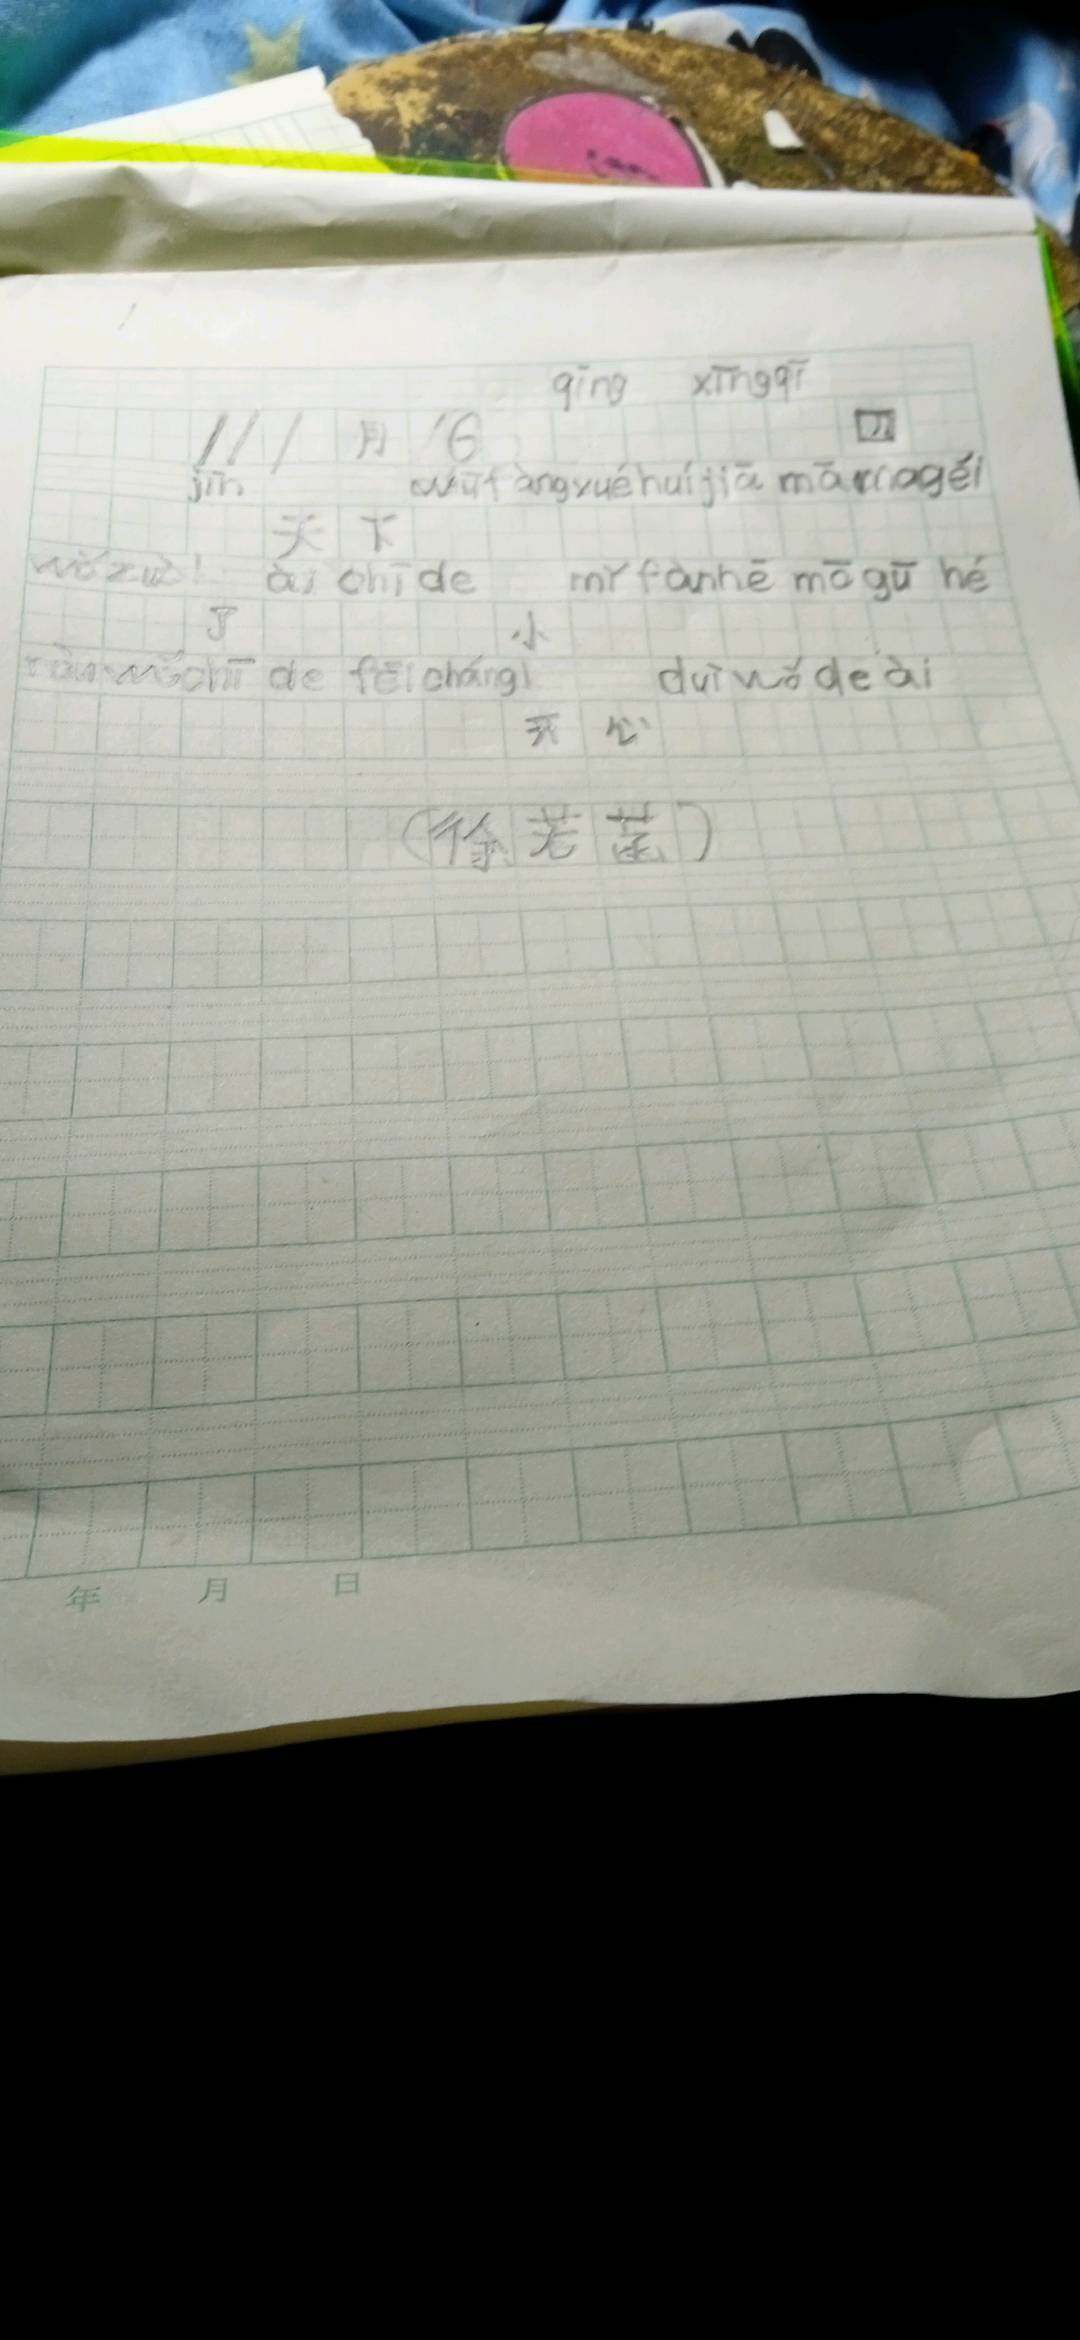 qīng xīngqī
111月16 四
jīn wǔfàngxuéhuíjiā māmagěi
天下
wǒzuò ài chī de mǐfànhē mōgū hé
了 小
wǒchī de fēicháng duìwǒdeài
开心
(徐若菡)
年 月 日